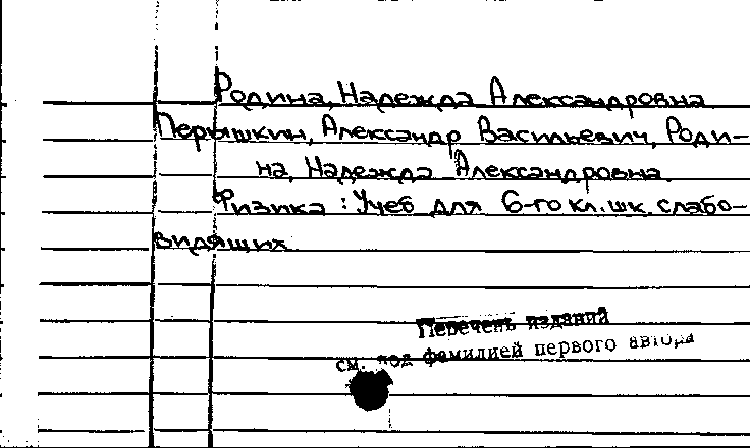 Родина, Надежда Александровна
Перышкин, Александр Васильевич, Роди-
на, Надежда Александровна.
Физика : Учеб для 6-го кл. шк. слабо-
видящих
Перечень изданий
см. под фамилией первого автора